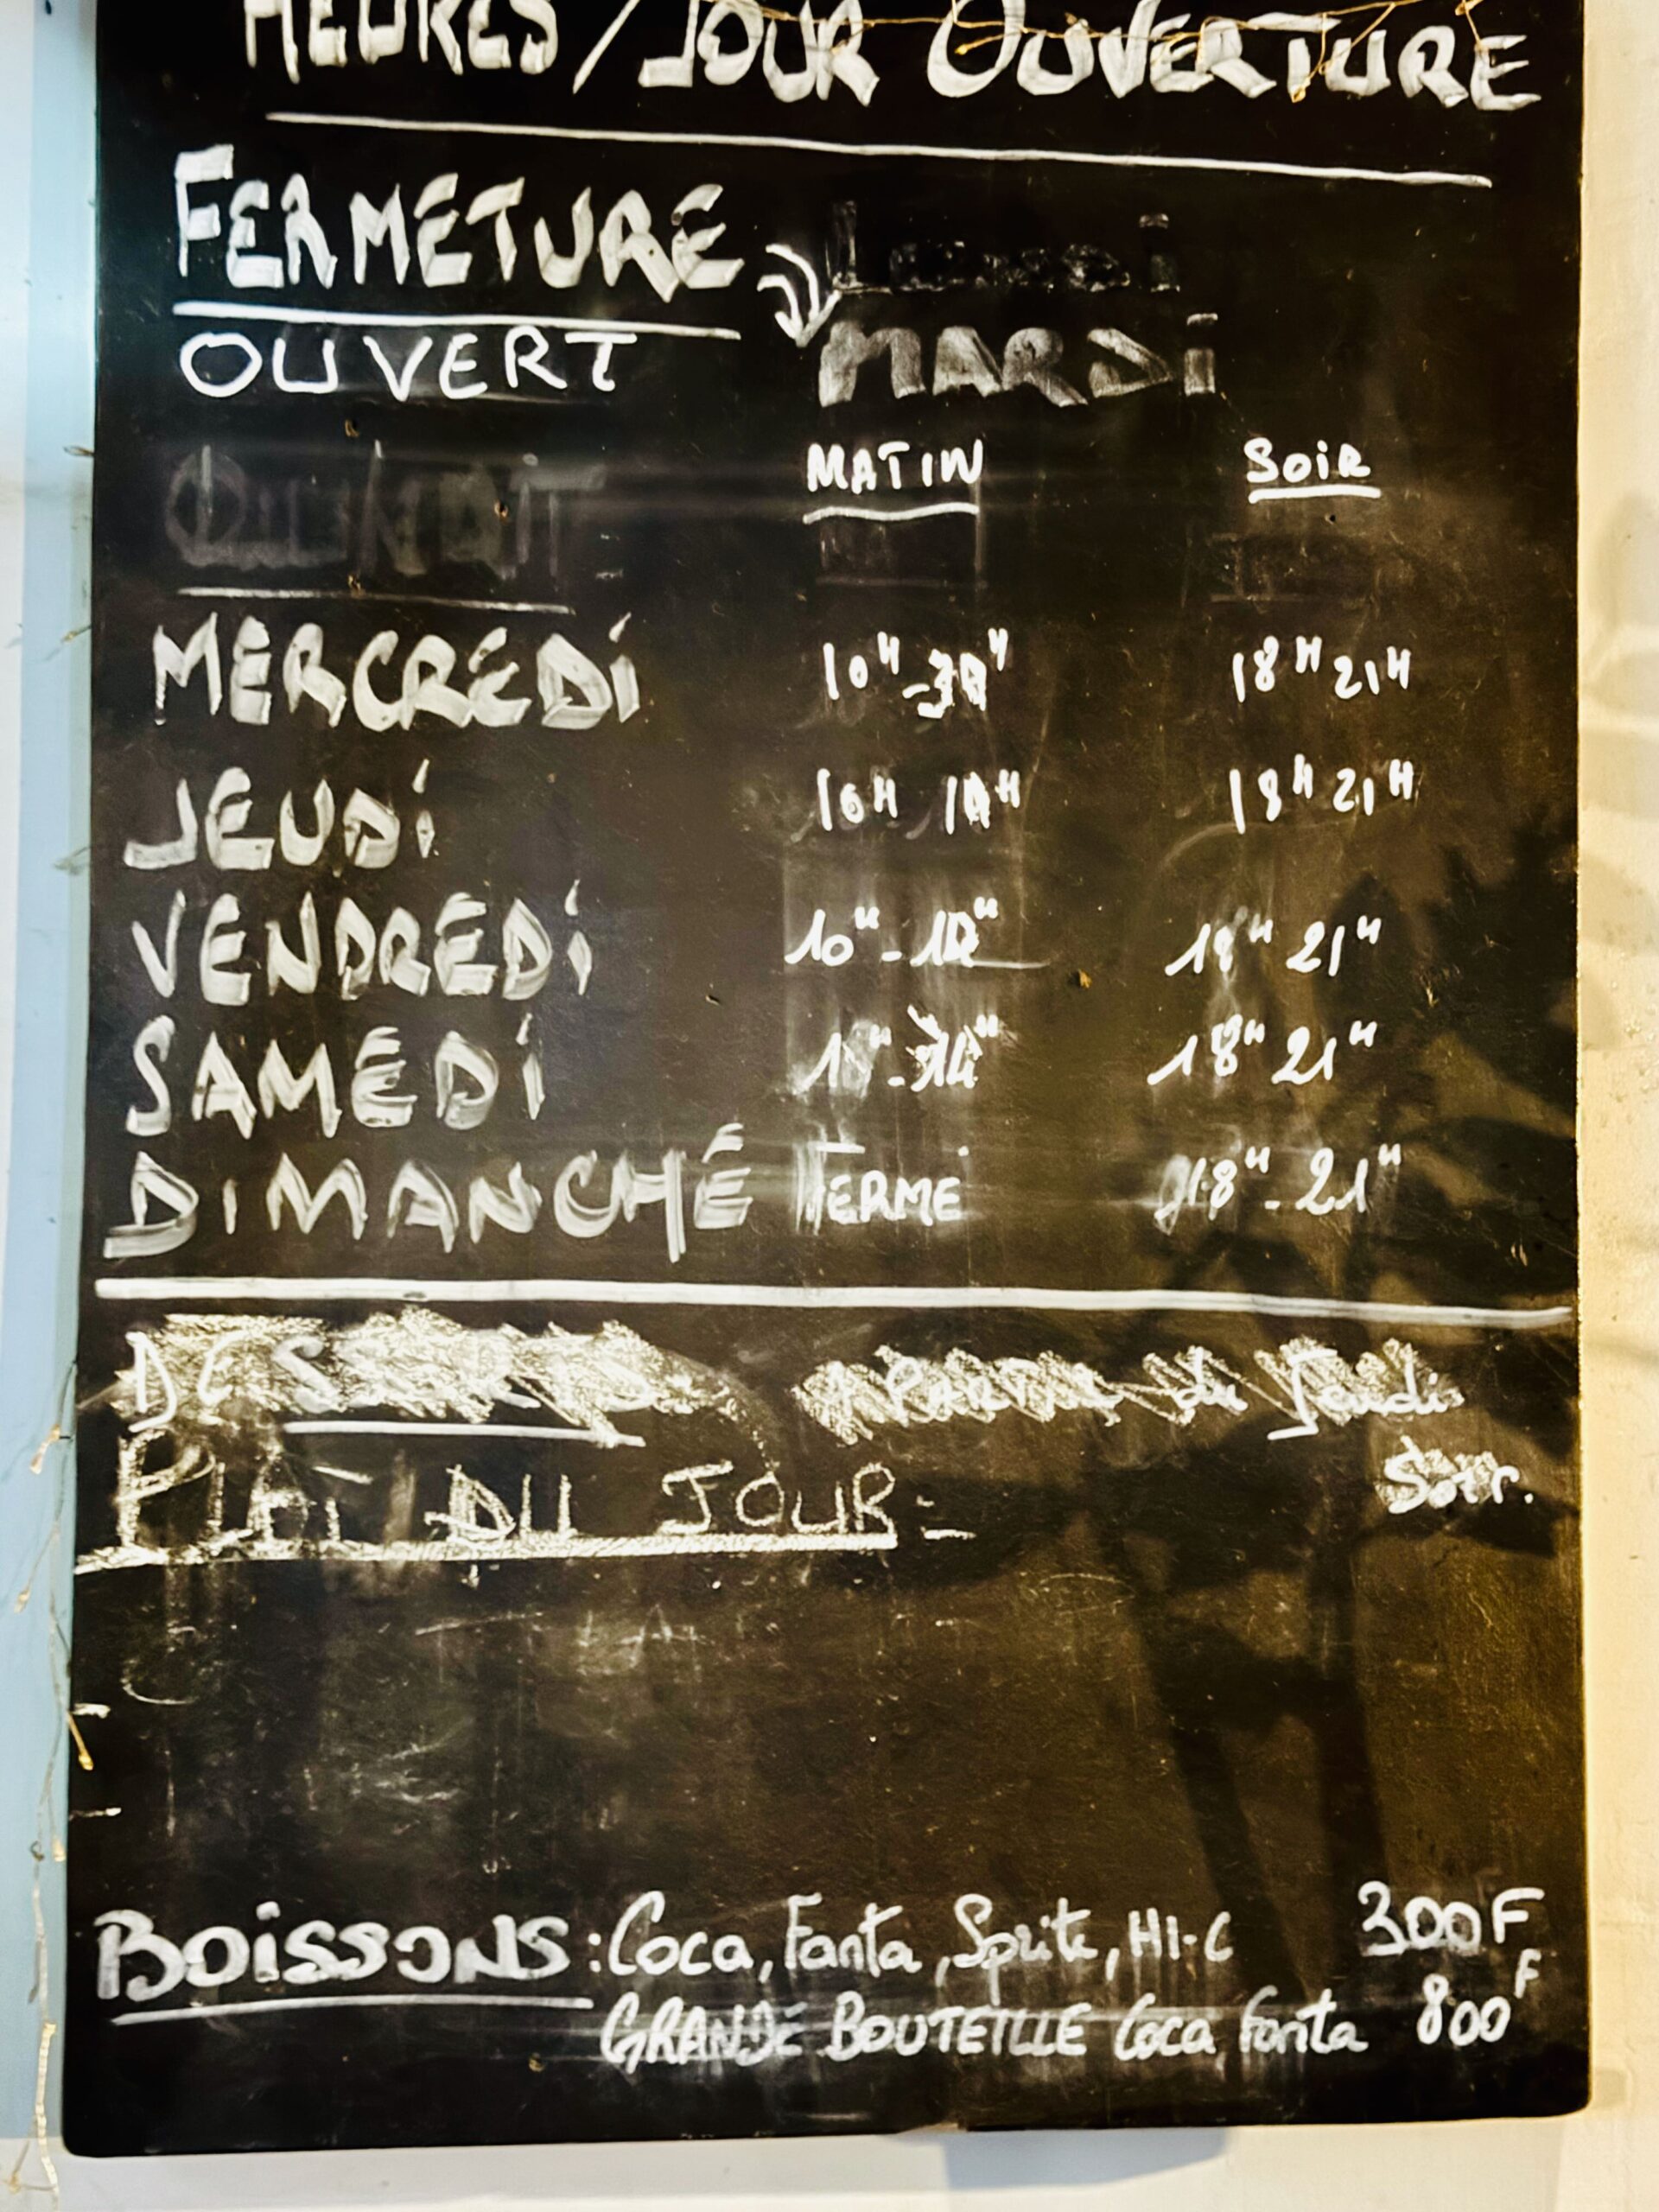 HEURES / JOUR OUVERTURE
FERMETURE Lundi
OUVERT MARDI
MATIN SOIR
MERCREDI 10H 18H 21H
JEUDI 10H 18H 21H
VENDREDI 10H - 18H 21H
SAMEDI 18H 21H
DIMANCHE FERME 18H - 21H
DESSERTS A PARTIR du Jeudi
Soir.
PLAT DU JOUR
BOISSONS : Coca, Fanta, Sprite, HI-C 300F
GRANDE BOUTEILLE Coca, Fanta 800F